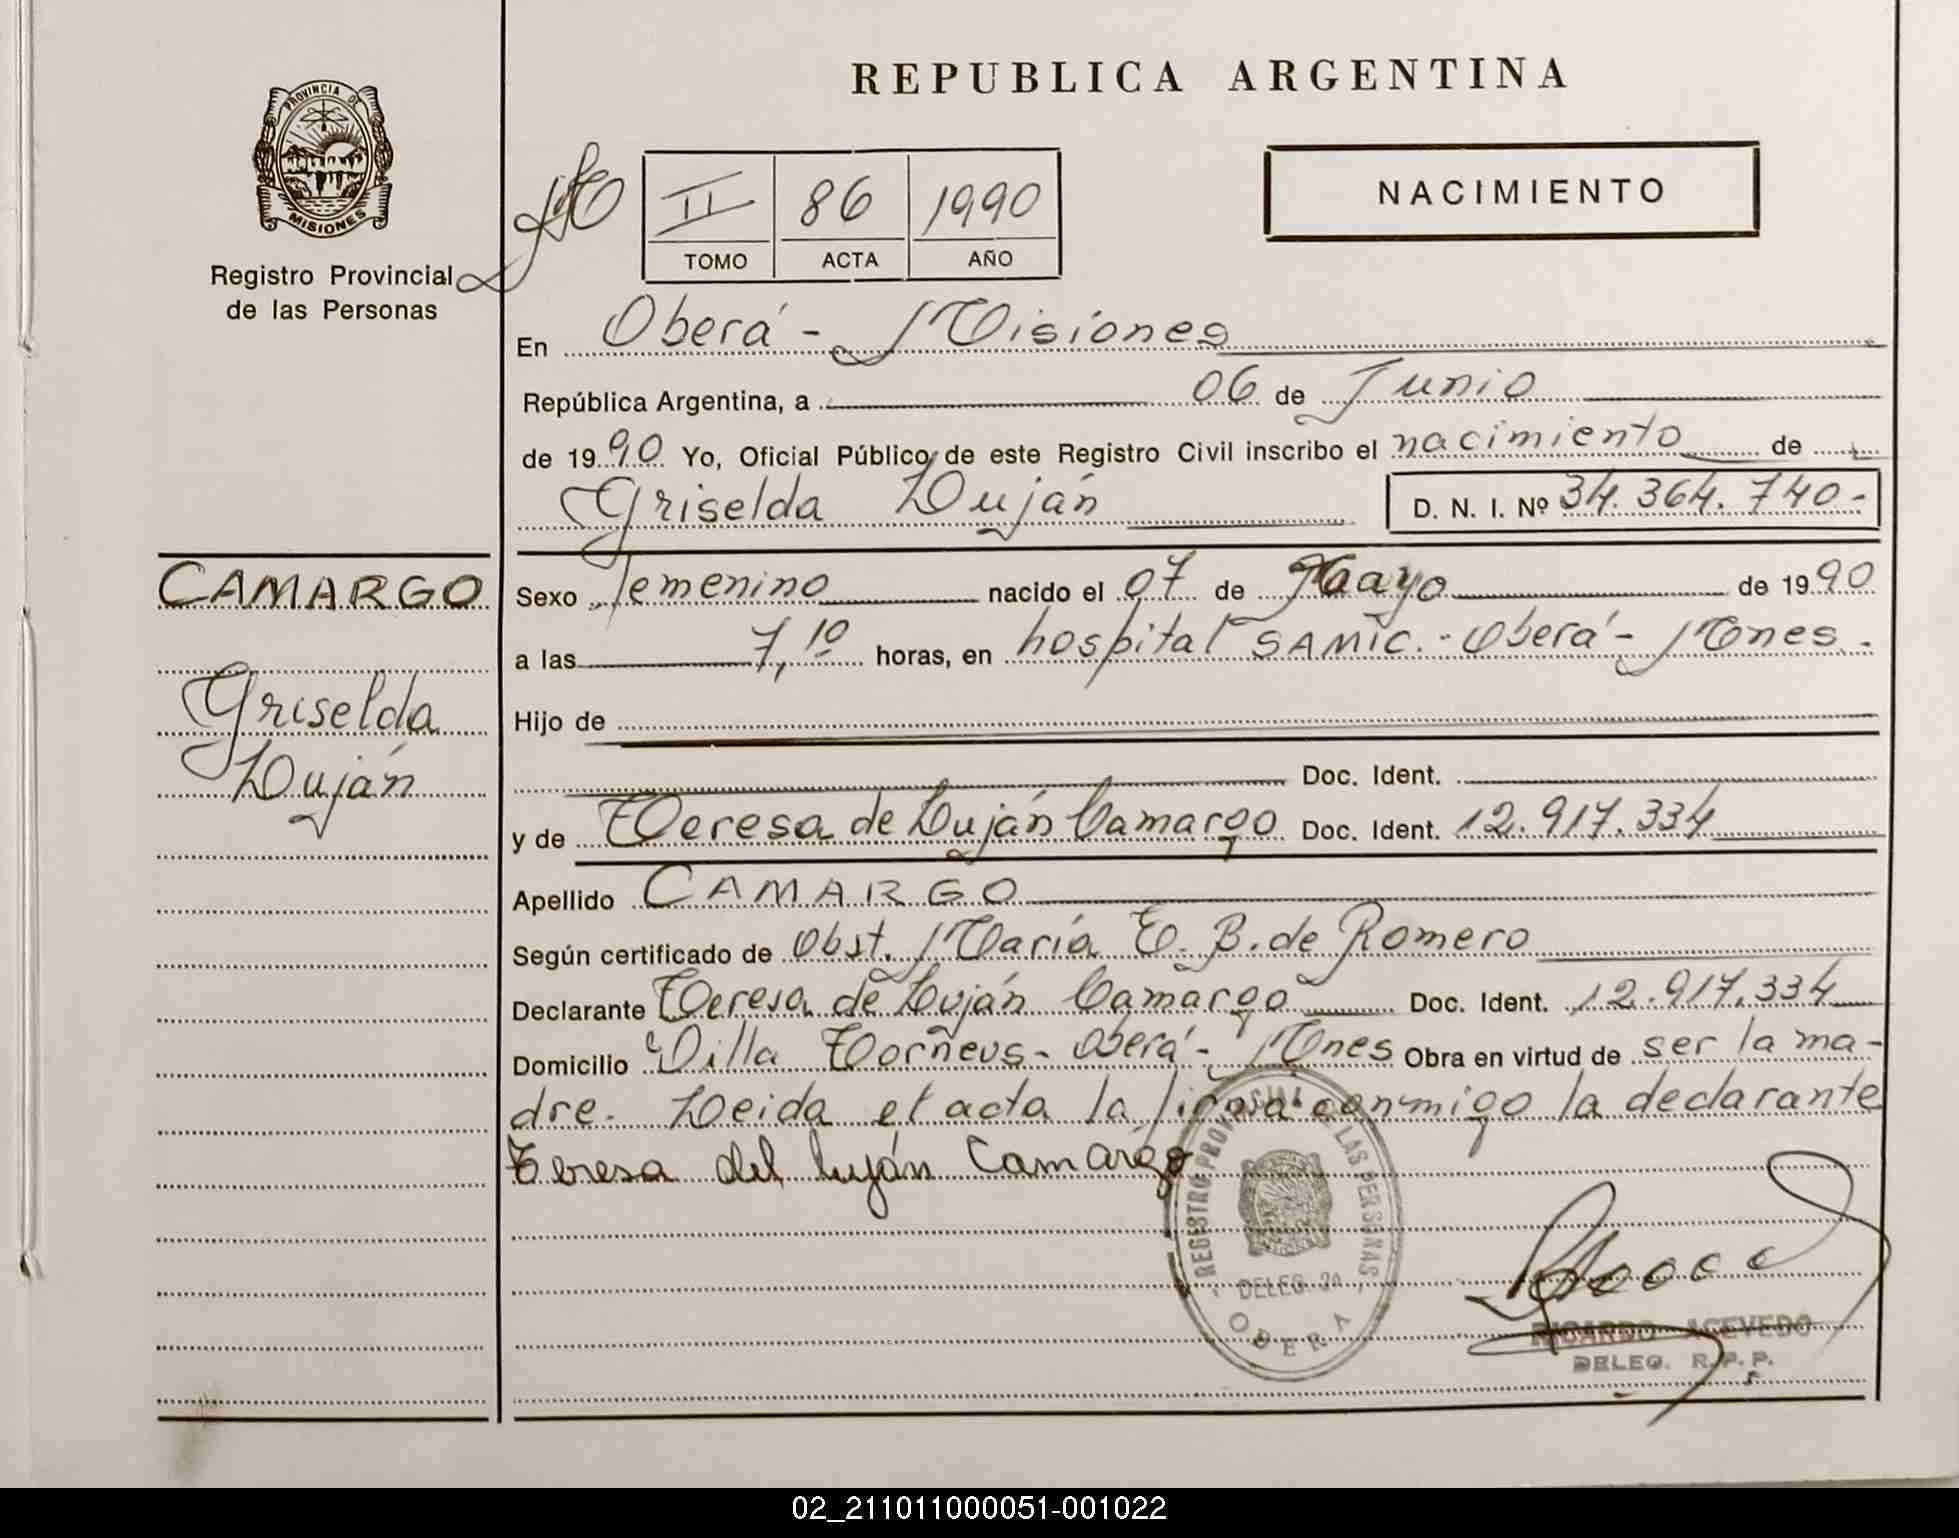 REPUBLICA ARGENTINA
PROVINCIA DE
MISIONES
Registro Provincial
de las Personas
II 86 1990
TOMO ACTA AÑO
NACIMIENTO
En Oberá - Misiones
República Argentina, a 06 de Junio
de 1990 Yo, Oficial Público de este Registro Civil inscribo el nacimiento de
Griselda Luján D. N. I. Nº 34.364.740-
CAMARGO
Griselda
Luján
Sexo femenino nacido el 07 de Mayo de 1990
a las 7,10 horas, en hospital SAMIC.- Oberá - Mnes.
Hijo de
Doc. Ident.
y de Teresa de Luján Camargo Doc. Ident. 12.917.334
Apellido CAMARGO
Según certificado de Obst. María E. B. de Romero
Declarante Teresa de Luján Camargo Doc. Ident. 12.917.334
Domicilio Villa Torneus - Oberá - Mnes Obra en virtud de ser la ma-
dre. Leida el acta la firma conmigo la declarante
Teresa del luján Camargo
REGISTRO PROVINCIAL DE LAS PERSONAS
DELEG. 2a
OBERA
RICARDO ACEVEDO
DELEG. R. P. P.
02_211011000051-001022